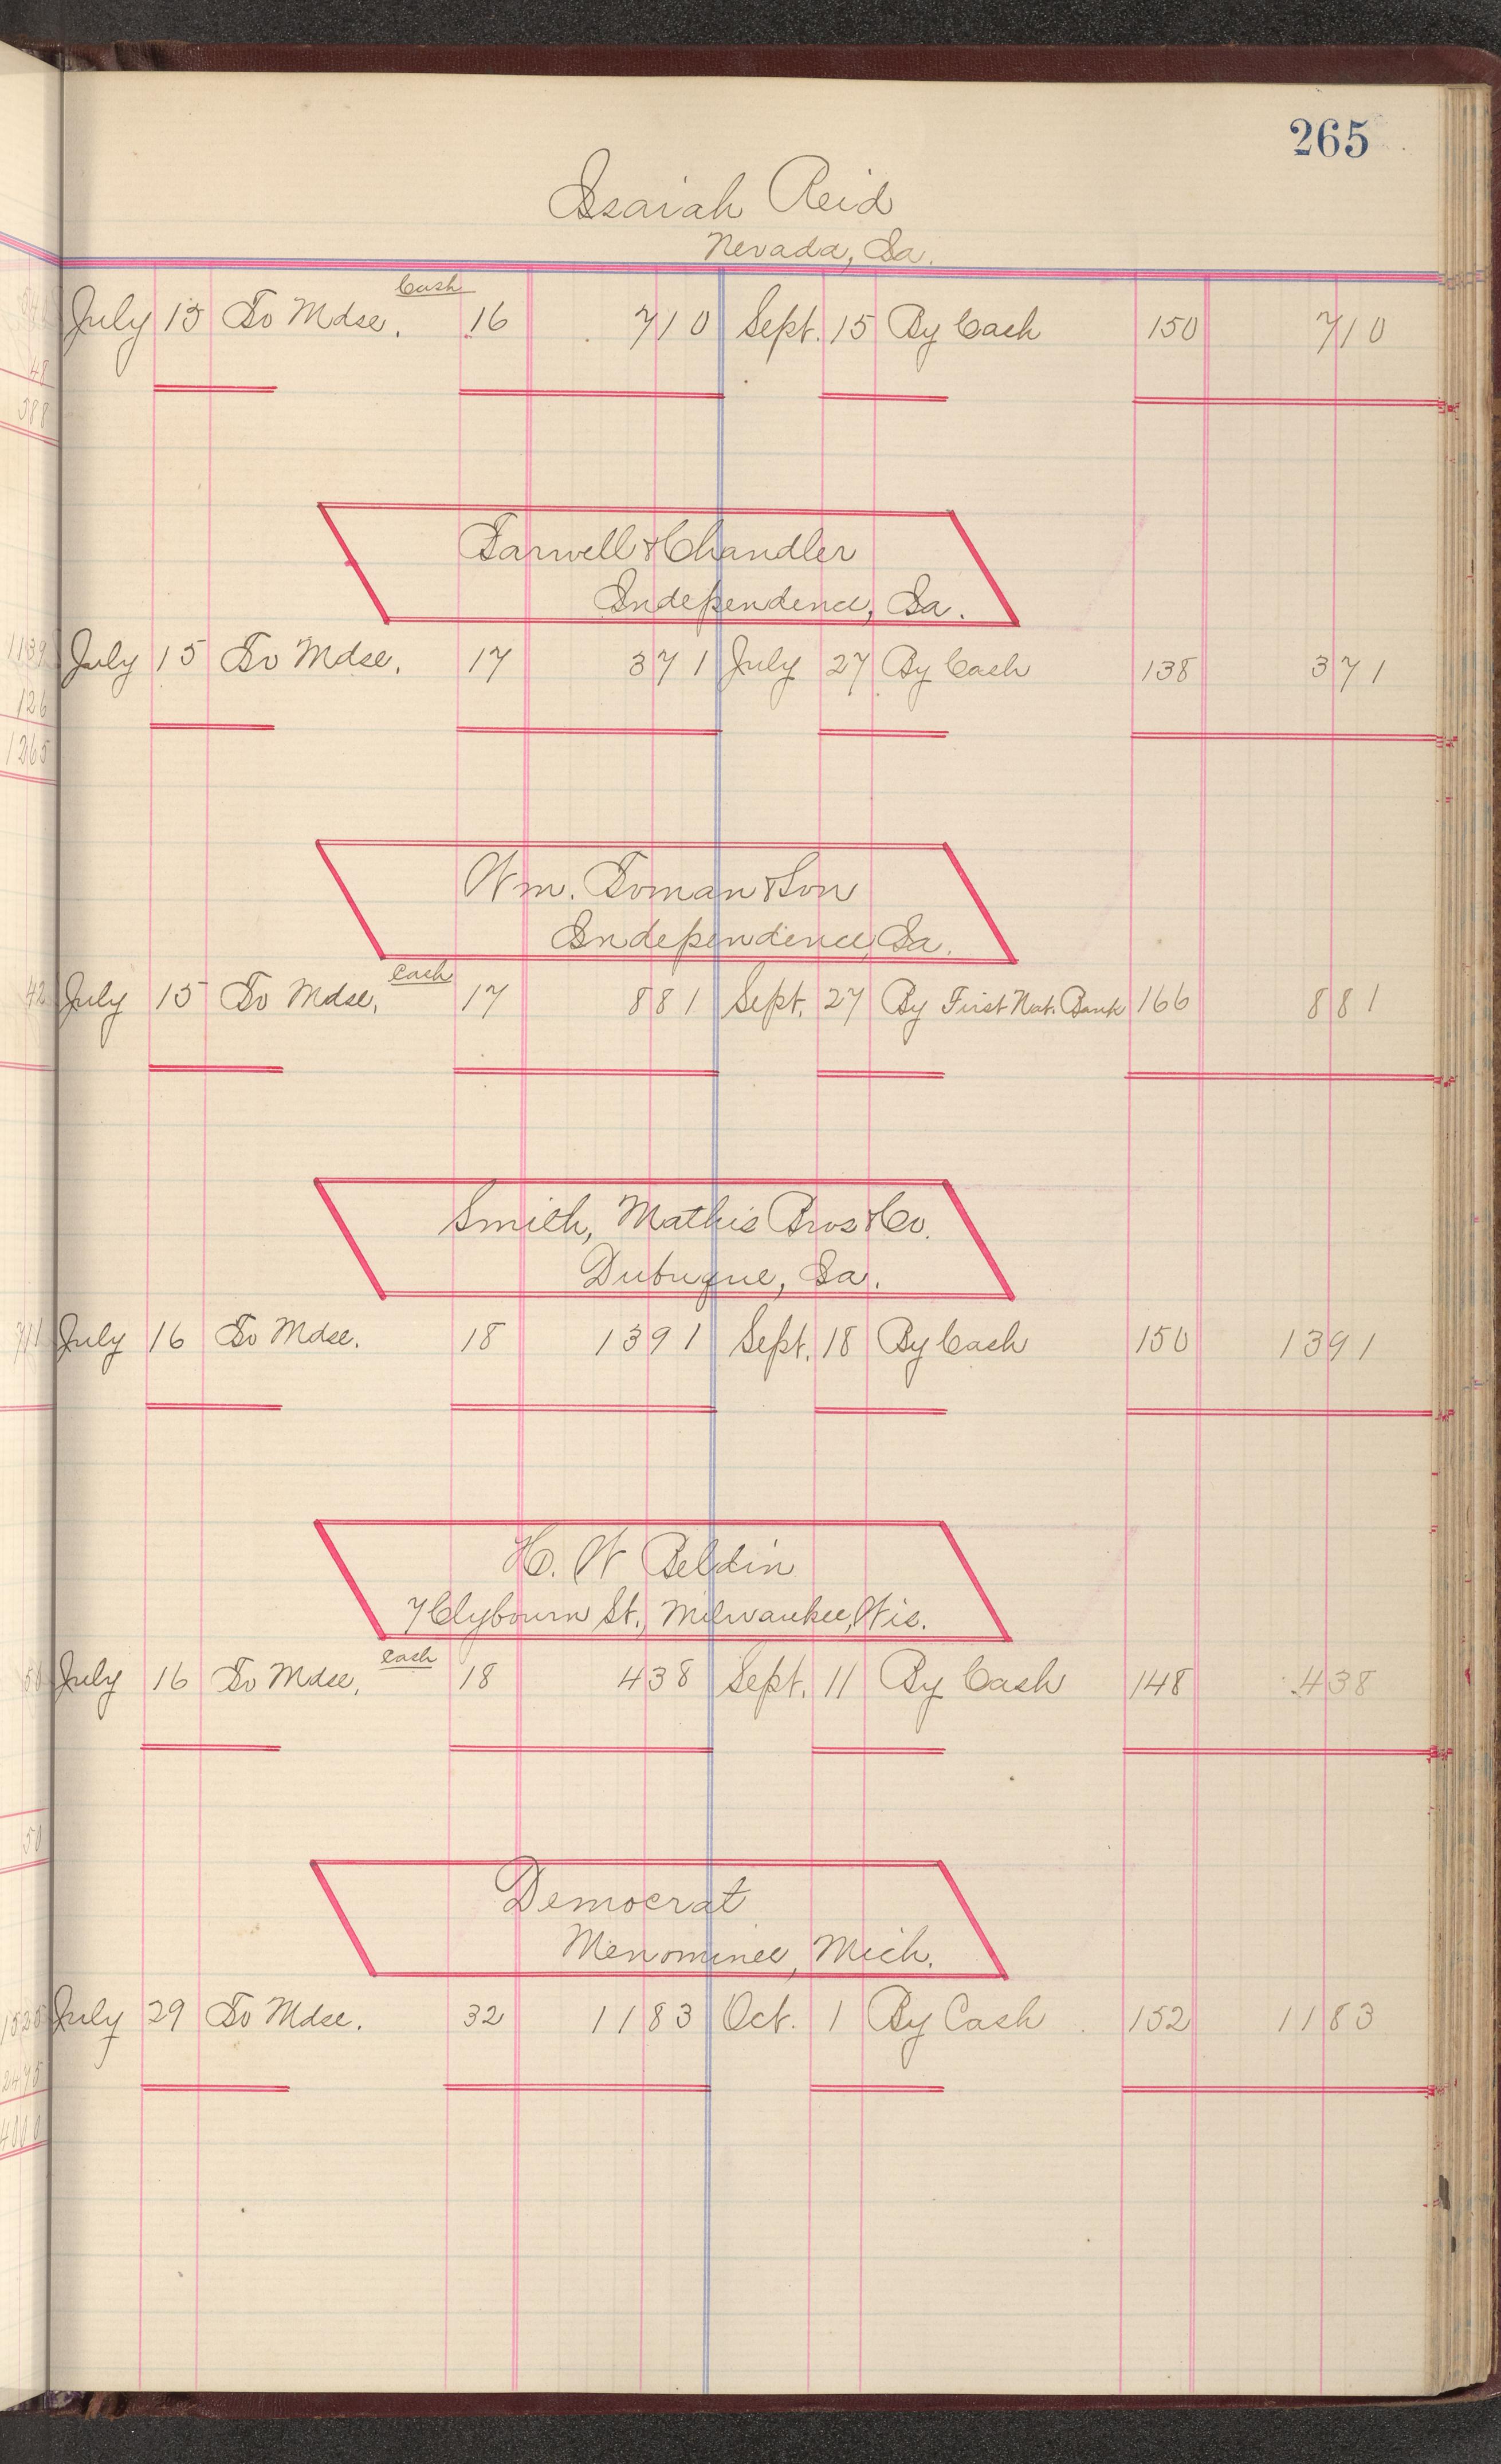 265
Isaiah Reid
Nevada, Ia.
Cash
July 15 To Mdse. 16 7 10 Sept. 15 By Cash 150 7 10
Farwell & Chandler
Independence, Ia.
July 15 To Mdse. 17 3 71 July 27 By Cash 138 3 71
Wm. Toman & Son
Independence, Ia.
Cash
July 15 To Mdse. 17 8 81 Sept. 27 By First Nat. Bank 166 8 81
Smith, Mathis Bros & Co.
Dubuque, Ia.
July 16 To Mdse. 18 13 91 Sept. 18 By Cash 150 13 91
H. W Beldin
7 Clybourn St., Milwaukee, Wis.
Cash
July 16 To Mdse. 18 4 38 Sept. 11 By Cash 148 4 38
Democrat
Menominee, Mich.
July 29 To Mdse. 32 11 83 Oct. 1 By Cash 152 11 83